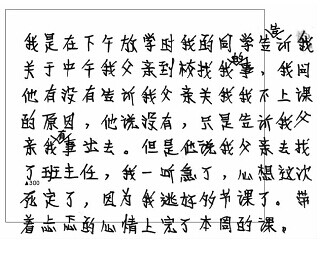 我是在下午放学时我的同学告诉我
关于中午我父亲到校找我的事，我问
他有没有告诉我父亲关我我不上课
的原因，他说没有，只是告诉我父
亲我有事出去。但是他说我父亲去找
了班主任，我一听急了，心想这次
死定了，因为我逃好多节课了。带
▲300
着忐忑的心情上完了本周的课。